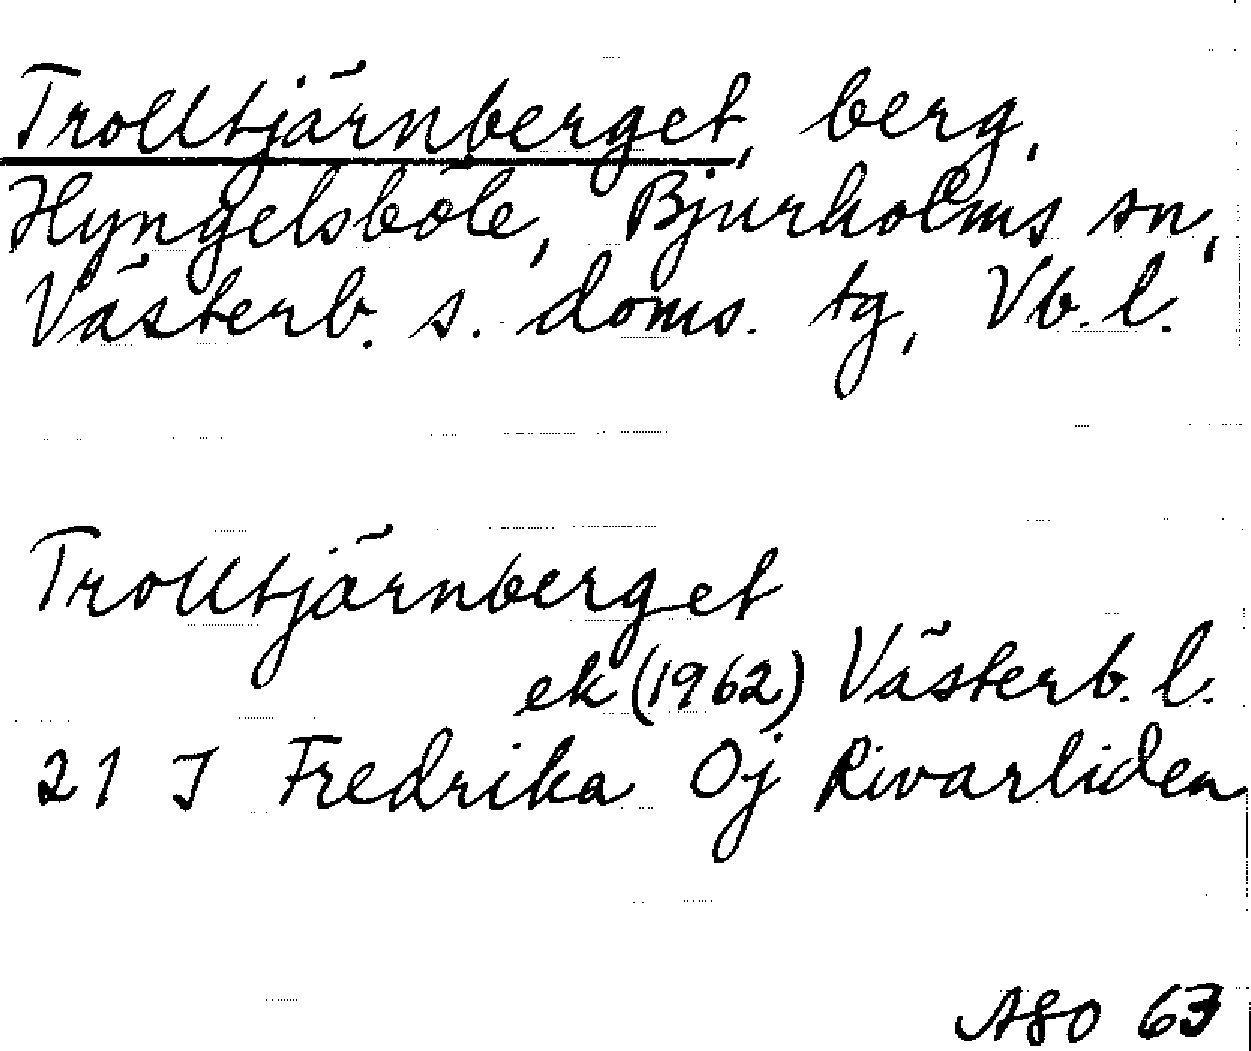 Trolltjärnberget, berg,
Hyngelsböle, Bjurholms sn,
Västerb. s. doms. tg, Vb. l.
Trolltjärnberget
ek (1962) Västerb. l.
21 J Fredrika Oj Rivarliden
ASO 63